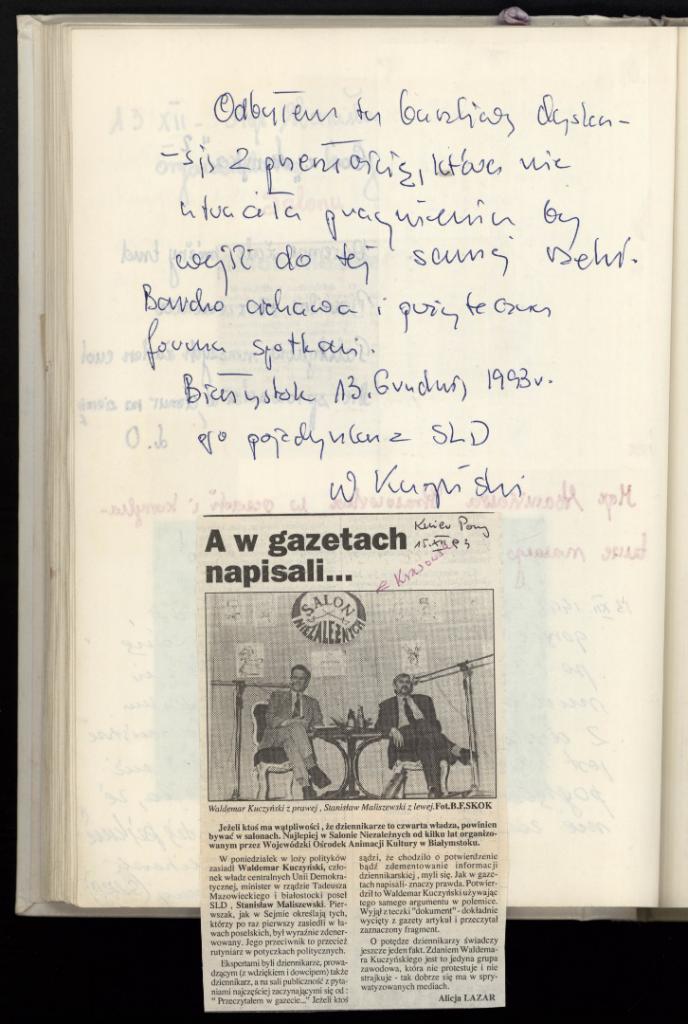 Odbyłem tu burzliwą dysku-
-sję z przeszłością, która nie
utraciła pragnienia by
wejść do tej samej rzeki.
Bardzo ciekawa i pożyteczna
forma spotkań.
Białystok 13. Grudnia 1993 r.
po pojedynku z SLD
W Kuczyński
A w gazetach
napisali...
Kurier Por
15.XII 93
SALON
NIEZALEŻNYCH
Waldemar Kuczyński z prawej , Stanisław Maliszewski z lewej.Fot.B.F.SKOK
Jeżeli ktoś ma wątpliwości , że dziennikarze to czwarta władza, powinien
bywać w salonach. Najlepiej w Salonie Niezależnych od kilku lat organizo-
wanym przez Wojewódzki Ośrodek Animacji Kultury w Białymstoku.
W poniedziałek w loży polityków
zasiadł Waldemar Kuczyński, czło-
nek władz centralnych Unii Demokra-
tycznej, minister w rządzie Tadeusza
Mazowieckiego i białostocki poseł
SLD , Stanisław Maliszewski. Pier-
wszak, jak w Sejmie określają tych,
którzy po raz pierwszy zasiedli w ła-
wach poselskich, był wyraźnie zdener-
wowany. Jego przeciwnik to przecież
rutyniarz w potyczkach politycznych.
Ekspertami byli dziennikarze, prowa-
dzącym (z wdziękiem i dowcipem) także
dziennikarz, a na sali publiczność z pyta-
niami najczęściej zaczynającymi się od :
" Przeczytałem w gazecie..." Jeżeli ktoś
sądzi, że chodziło o potwierdzenie
bądź zdementowanie informacji
dziennikarskiej , myli się. Jak w gaze-
tach napisali- znaczy prawda. Potwier-
dził to Waldemar Kuczyński używając
tego samego argumentu w polemice.
Wyjął z teczki "dokument" - dokładnie
wycięty z gazety artykuł i przeczytał
zaznaczony fragment.
O potędze dziennikarzy świadczy
jeszcze jeden fakt. Zdaniem Waldema-
ra Kuczyńskiego jest to jedyna grupa
zawodowa, która nie protestuje i nie
strajkuje - tak dobrze się ma w spry-
watyzowanych mediach.
Alicja LAZAR